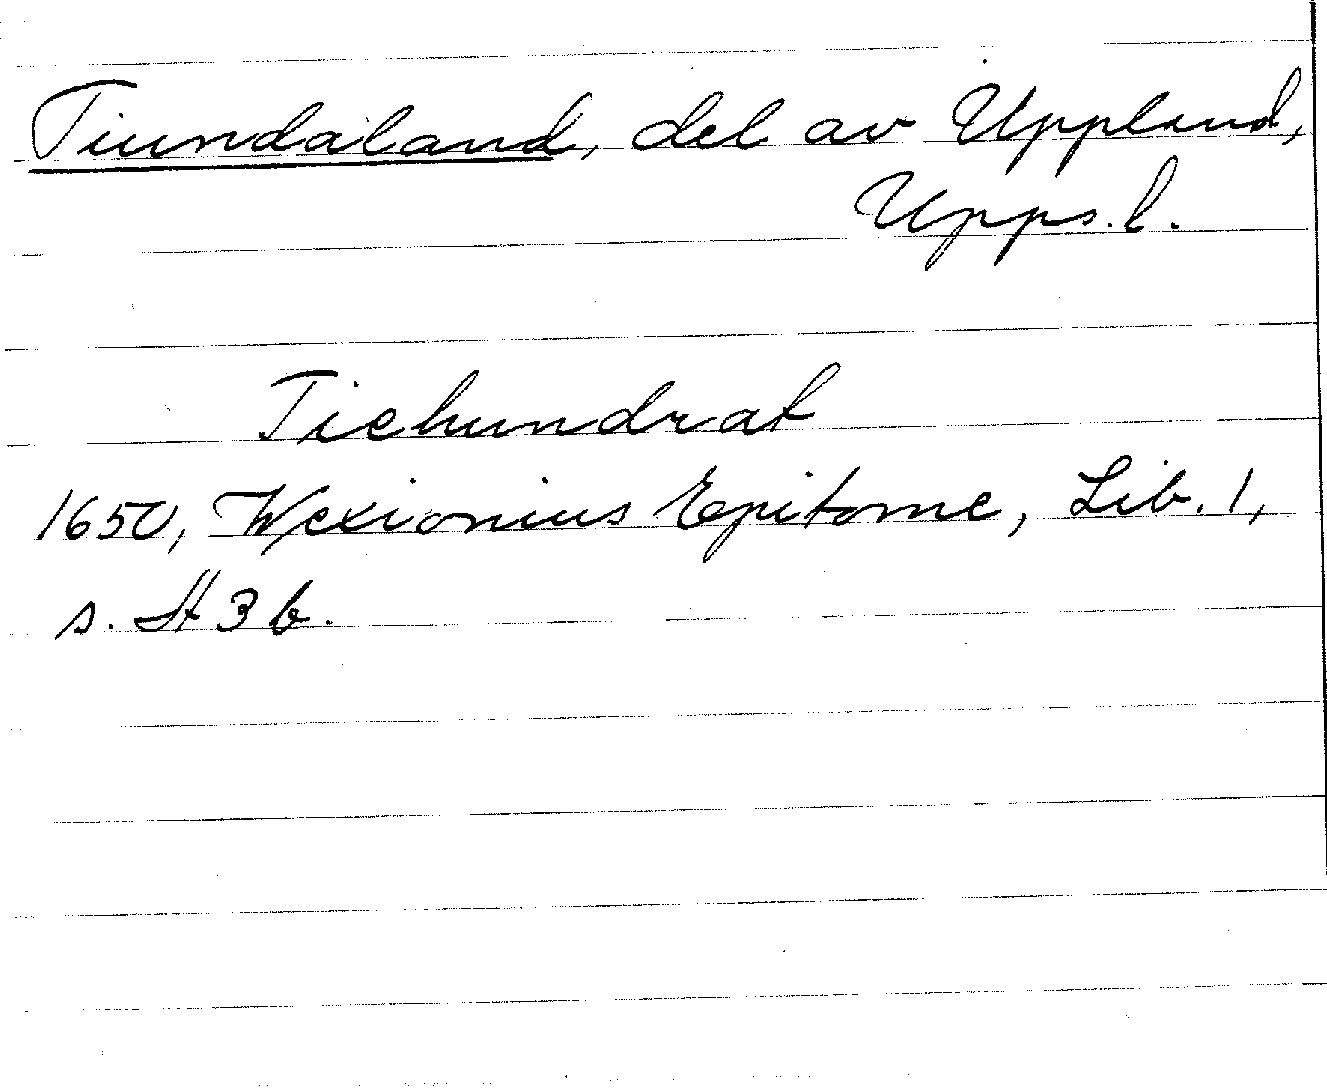 Tiundaland, del av Uppland,
Upps. l.
Tiehundrat
1650, Wexionius Epitome, Lib. 1,
s. H 3 b.